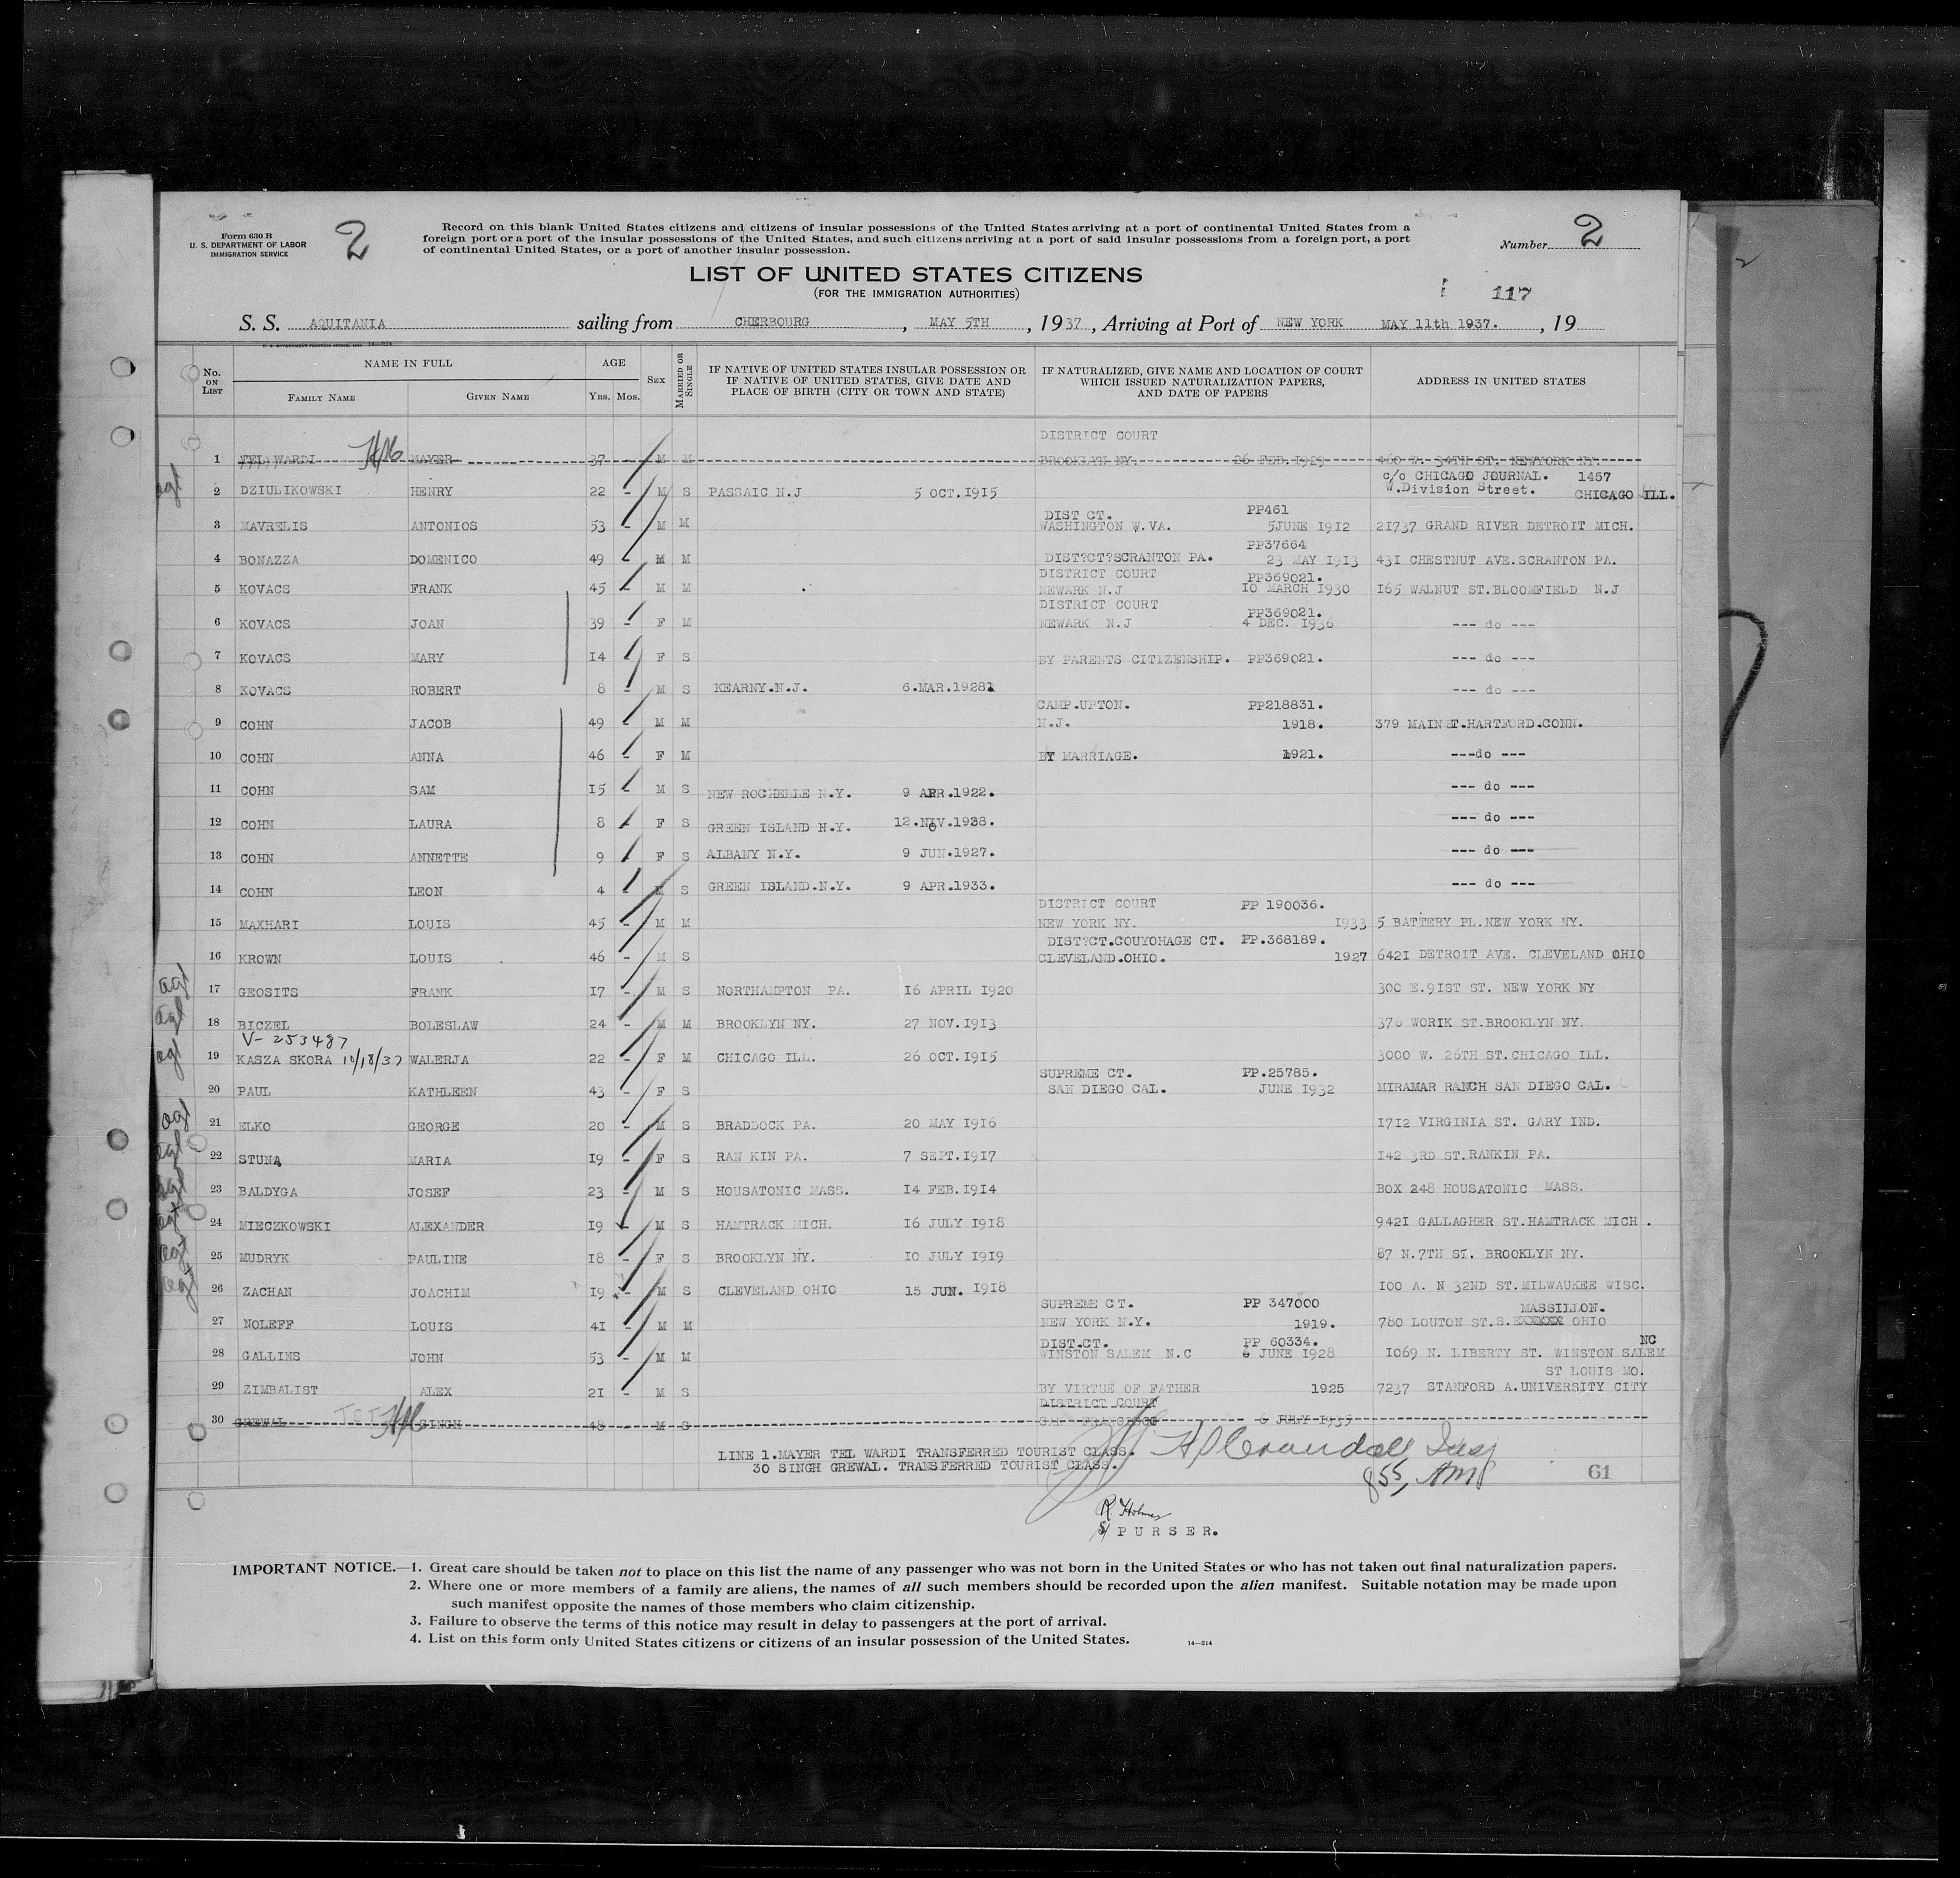 Form 630 B
U. S. DEPARTMENT OF LABOR
IMMIGRATION SERVICE
2
Record on this blank United States citizens and citizens of insular possessions of the United States arriving at a port of continental United States from a
foreign port or a port of the insular possessions of the United States, and such citizens arriving at a port of said insular possessions from a foreign port, a port
of continental United States, or a port of another insular possession.
Number 2
LIST OF UNITED STATES CITIZENS
(FOR THE IMMIGRATION AUTHORITIES)
117
S. S. AQUITANIA sailing from CHERBOURG, MAY 5TH, 1937, Arriving at Port of NEW YORK MAY 11th 1937., 19
No. ON LIST
NAME IN FULL
FAMILY NAME
GIVEN NAME
AGE
YRS. MOS.
SEX
MARRIED OR SINGLE
IF NATIVE OF UNITED STATES INSULAR POSSESSION OR
IF NATIVE OF UNITED STATES, GIVE DATE AND
PLACE OF BIRTH (CITY OR TOWN AND STATE)
IF NATURALIZED, GIVE NAME AND LOCATION OF COURT
WHICH ISSUED NATURALIZATION PAPERS,
AND DATE OF PAPERS
ADDRESS IN UNITED STATES
DISTRICT COURT
1 TEL WARDI MAYER 37 - M M BROOKLYN NY. 26 FEB. 1929 460 W. 34TH ST. NEWYORK NY.
c/o CHICAGO JOURNAL. 1457
agt 2 DZIULIKOWSKI HENRY 22 - M S PASSAIC N.J 5 OCT.1915 W.Division Street. CHICAGO ILL.
DIST CT. PP461
3 MAVRELIS ANTONIOS 53 - M M WASHINGTON W.VA. 5JUNE 1912 21737 GRAND RIVER DETROIT MICH.
PP37664
4 BONAZZA DOMENICO 49 - M M DIST?CT?SCRANTON PA. 23 MAY 1913 431 CHESTNUT AVE.SCRANTON PA.
DISTRICT COURT PP369021.
5 KOVACS FRANK 45 - M M NEWARK N.J 10 MARCH 1930 165 WALNUT ST.BLOOMFIELD N.J
DISTRICT COURT PP369021.
6 KOVACS JOAN 39 - F M NEWARK N.J 4 DEC. 1936 --- do ---
7 KOVACS MARY 14 - F S BY PARENTS CITIZENSHIP. PP369021. --- do ---
8 KOVACS ROBERT 8 - M S KEARNY.N.J. 6.MAR.1928 --- do ---
CAMP.UPTON. PP218831.
9 COHN JACOB 49 - M M N.J. 1918. 379 MAIN ST.HARTFORD.CONN.
10 COHN ANNA 46 - F M BY MARRIAGE. 1921. ---do ---
11 COHN SAM 15 - M S NEW ROCHELLE N.Y. 9 APR.1922. --- do ---
12 COHN LAURA 8 - F S GREEN ISLAND N.Y. 12.NOV.1928. --- do ---
13 COHN ANNETTE 9 - F S ALBANY N.Y. 9 JUN.1927. --- do ---
14 COHN LEON 4 - M S GREEN ISLAND.N.Y. 9 APR.1933. --- do ---
DISTRICT COURT PP 190036.
15 MAXHARI LOUIS 45 - M M NEW YORK NY. 1933 5 BATTERY PL.NEW YORK NY.
DIST?CT.COUYOHAGE CT. PP.368189.
16 KROWN LOUIS 46 - M S CLEVELAND.OHIO. 1927 6421 DETROIT AVE. CLEVELAND OHIO
agt 17 GEOSITS FRANK 17 - M S NORTHAMPTON PA. 16 APRIL 1920 300 E.91ST ST. NEW YORK NY
agt 18 BICZEL BOLESLAW 24 - M M BROOKLYN NY. 27 NOV.1913 376 WORIK ST.BROOKLYN NY.
V- 253487
agt 19 KASZA SKORA 10/18/37 WALERJA 22 - F M CHICAGO ILL. 26 OCT.1915 3000 W. 26TH ST.CHICAGO ILL.
SUPREME CT. PP.25785.
20 PAUL KATHLEEN 43 - F S SAN DIEGO CAL. JUNE 1932 MIRAMAR RANCH SAN DIEGO CAL.
agt 21 ELKO GEORGE 20 - M S BRADDOCK PA. 20 MAY 1916 1712 VIRGINIA ST. GARY IND.
agt 22 STUNA MARIA 19 - F S RAN KIN PA. 7 SEPT.1917 142 3RD ST.RANKIN PA.
agt 23 BALDYGA JOSEF 23 - M S HOUSATONIC MASS. 14 FEB.1914 BOX 248 HOUSATONIC MASS.
agt 24 MIECZKOWSKI ALEXANDER 19 - M S HAMTRACK MICH. 16 JULY 1918 9421 GALLAGHER ST.HAMTRACK MICH.
agt 25 MUDRYK PAULINE 18 - F S BROOKLYN NY. 10 JULY 1919 87 N.7TH ST. BROOKLYN NY.
agt 26 ZACHAN JOACHIM 19 - M S CLEVELAND OHIO 15 JUN. 1918 100 A. N 32ND ST.MILWAUKEE WISC.
SUPREME CT. PP 347000 MASSILLON.
27 NOLEFF LOUIS 41 - M M NEW YORK N.Y. 1919. 780 LOUTON ST.S. OHIO
DIST.CT. PP 60334. NC
28 GALLINS JOHN 53 - M M WINSTON SALEM N.C 6 JUNE 1928 1069 N. LIBERTY ST. WINSTON SALEM
ST LOUIS MO.
29 ZIMBALIST ALEX 21 - M S BY VIRTUE OF FATHER 1925 7237 STANFORD A.UNIVERSITY CITY
DISTRICT COURT
30 GREWAL SINGH 48 - M S SAN FRANCISCO 6 JULY 1935
LINE 1.MAYER TEL WARDI TRANSFERRED TOURIST CLASS.
30 SINGH GREWAL. TRANSFERRED TOURIST CLASS.
61
R Holmes
PURSER.
IMPORTANT NOTICE.—1. Great care should be taken not to place on this list the name of any passenger who was not born in the United States or who has not taken out final naturalization papers.
2. Where one or more members of a family are aliens, the names of all such members should be recorded upon the alien manifest. Suitable notation may be made upon
such manifest opposite the names of those members who claim citizenship.
3. Failure to observe the terms of this notice may result in delay to passengers at the port of arrival.
4. List on this form only United States citizens or citizens of an insular possession of the United States.
14—214